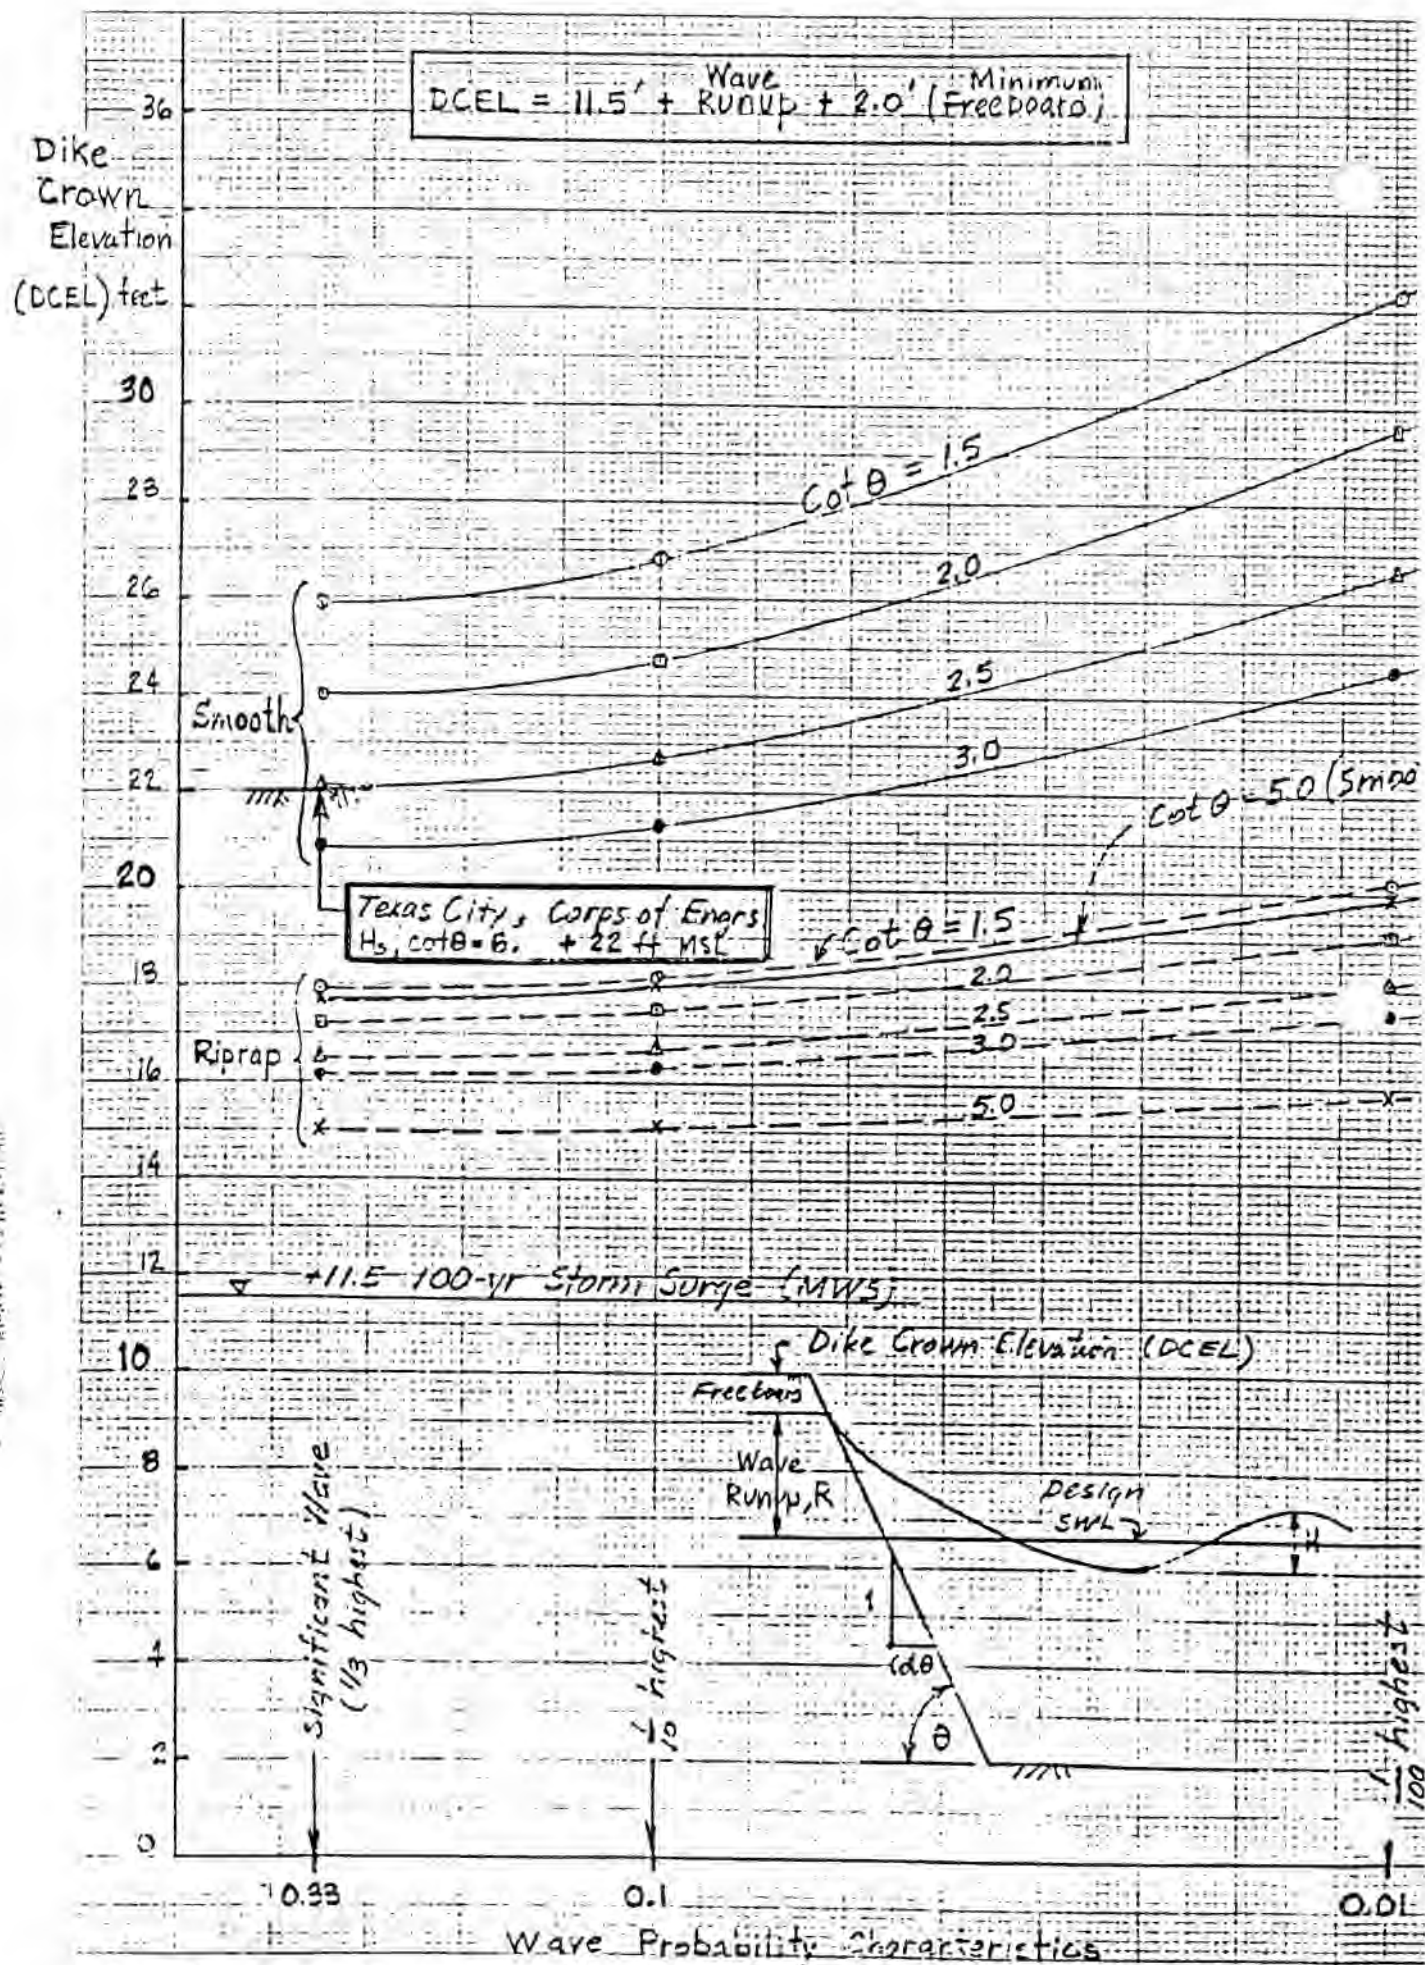 Wave Minimum
DCEL = 11.5' + Runup + 2.0' (Freeboard)
36
Dike
Crown
Elevation
(DCEL) feet
30
28
26
24
22
20
18
16
14
12
10
8
6
4
2
0
Cot θ = 1.5
2.0
2.5
3.0
Cot θ - 5.0 (Smoo
Smooth
Texas City, Corps of Engrs
Hs, cot θ = 6. + 22 ft MSL
Cot θ = 1.5
2.0
2.5
3.0
5.0
Riprap
+11.5 100-yr Storm Surge (MWS)
Dike Crown Elevation (DCEL)
Wave
Runup, R
Design
SWL
H
1
θ
Significant Wave
(1/3 highest)
1/10 highest
1/100 highest
0.33
0.1
0.01
Wave Probability Characteristics